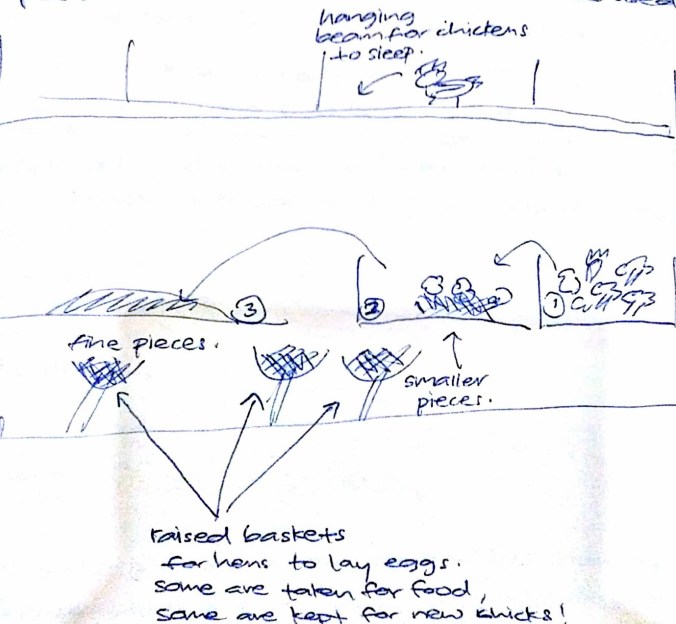 hanging
beam for chickens
to sleep.
3
2
1
fine pieces.
smaller
pieces.
raised baskets
for hens to lay eggs.
some are taken for food,
some are kept for new chicks!